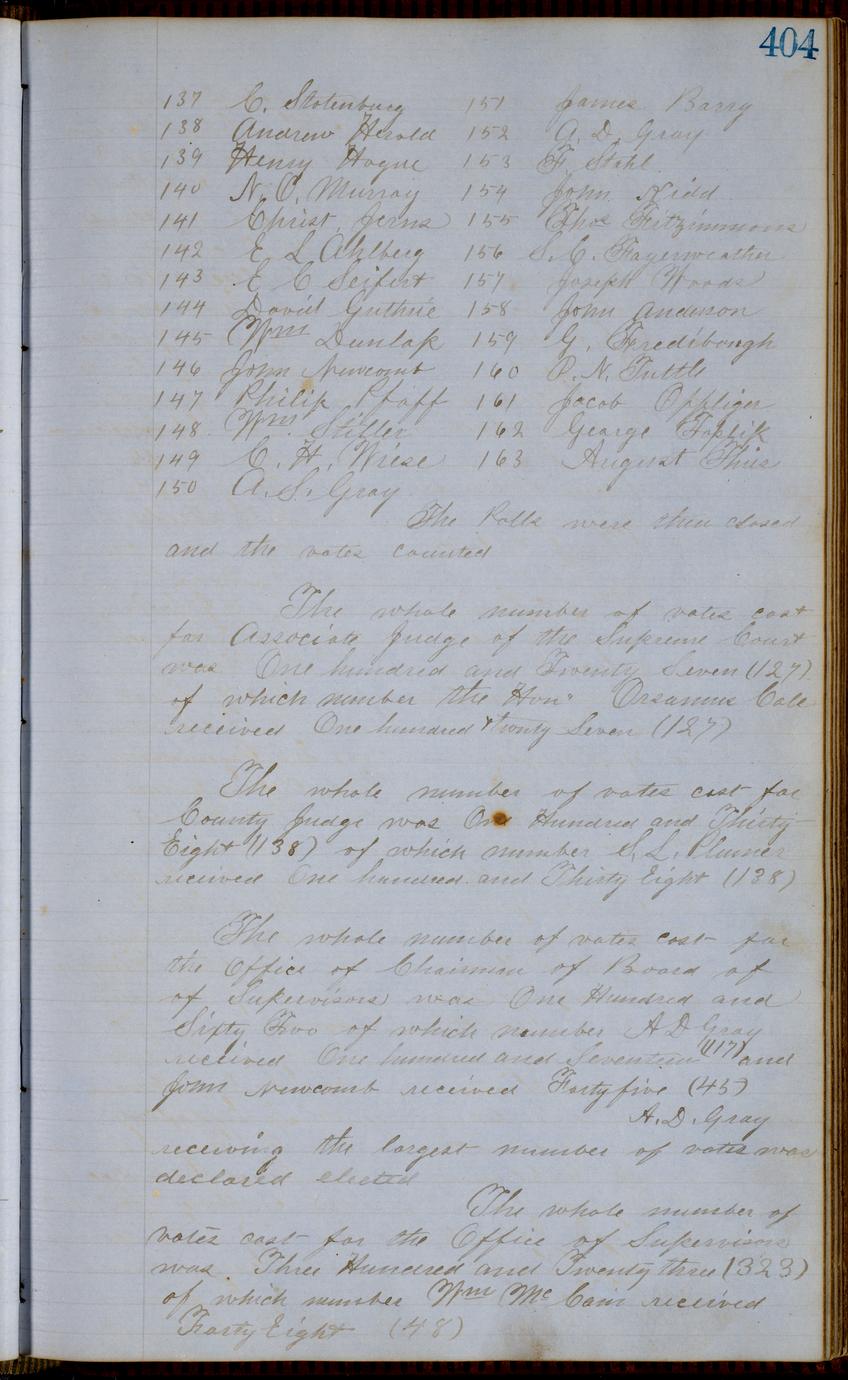 404
137 C. Stotenburg 151 James Barry
138 Andrew Herold 152 A. D. Gray
139 Henry Hogue 153 F. Stahl
140 N. C. Murray 154 John Kidd
141 Christ. Jerns 155 Thos Fitzimmons
142 E L Ahlberg 156 S. C. Fayerweather
143 E C Seifert 157 Joseph Woods
144 David Guthrie 158 John Anderson
145 Wm Dunlap 159 G. Fredibough
146 John Newcomb 160 P. N. Tuttle
147 Philip Pfaff 161 Jacob Oppliger
148 Wm. Stiller 162 George
149 C. H. Wiese 163 August Thie
150 A. S. Gray
The Polls were then closed
and the votes counted
The whole number of votes cast
for Associate Judge of the Supreme Court
was One hundred and Twenty Seven (127)
of which number the Hon" Orsamus Cole
received One hundred & twenty Seven (127)
The whole number of votes cast for
County Judge was One Hundred and Thirty
Eight (138) of which number S. L. Plumer
received One hundred and Thirty Eight (138)
The whole number of votes cast for
the Office of Chairman of Board of
of Supervisors was One Hundred and
Sixty Two of which number A D Gray
received One hundred and Seventeen (117) and
John Newcomb received Forty five (45)
A. D. Gray
receiving the largest number of votes was
declared elected
The whole number of
votes cast for the Office of Supervisors
was Three Hundred and Twenty three (323)
of which number Wm Mc Cain received
Forty Eight (48)